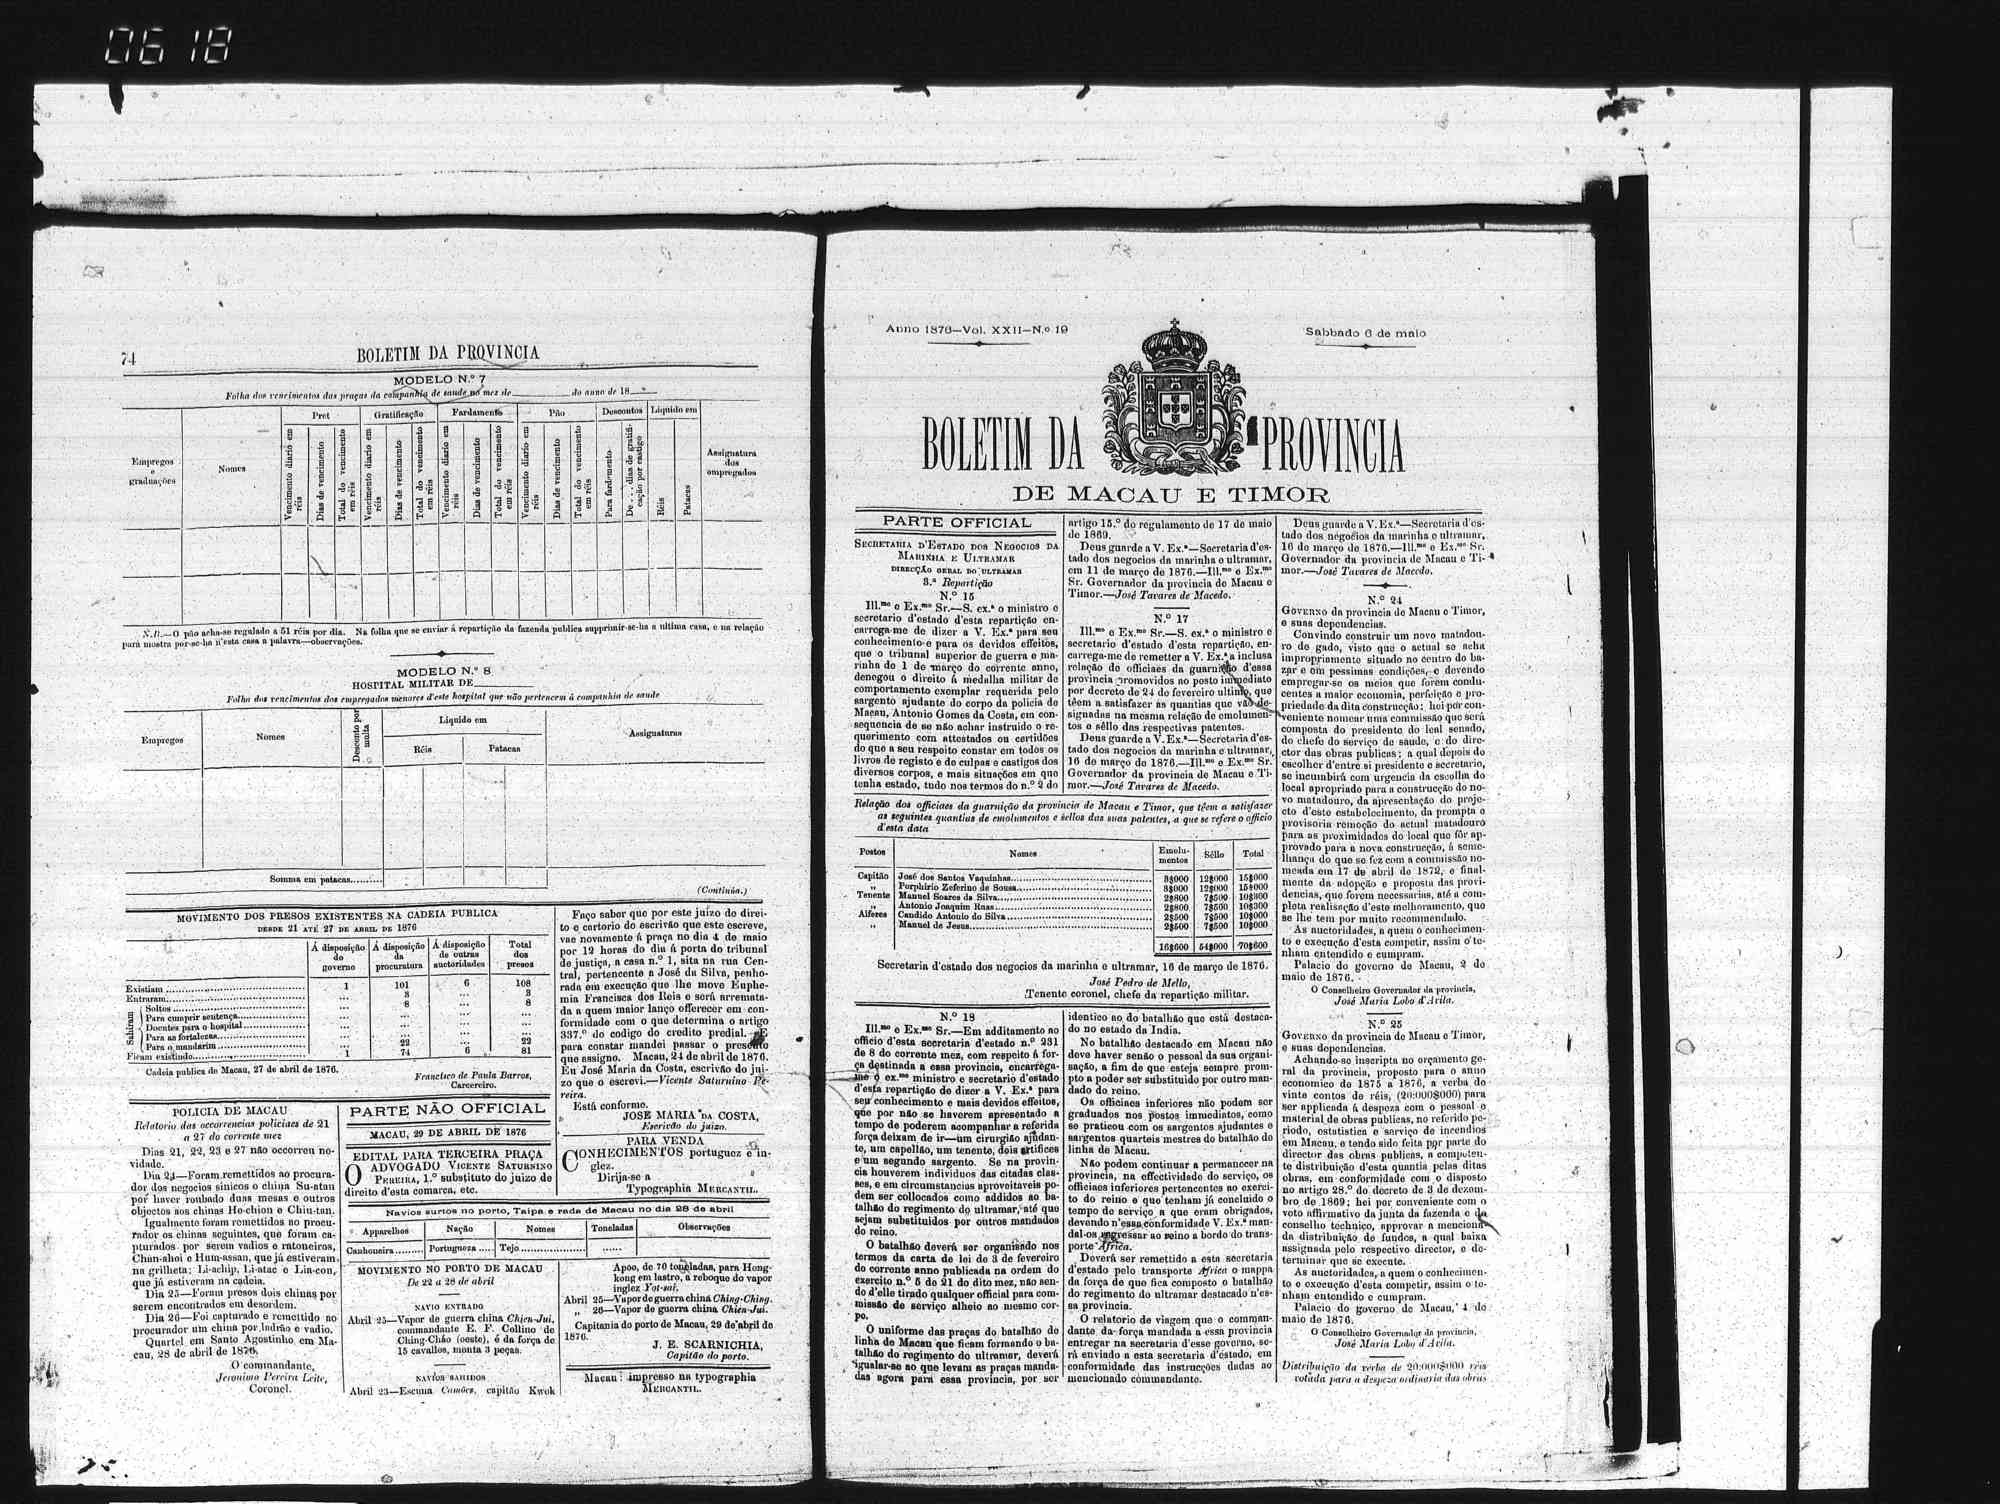 0618
74
BOLETIM DA PROVINCIA
MODELO N.º 7
Folha dos vencimentos das praças da companhia de saude no mez de do anno de 18
Empregos e graduações
Nomes
Pret
Gratificação
Fardamento
Pão
Descontos
Liquido em
Assignatura dos empregados
Vencimento diario em réis
Dias de vencimento
Total do vencimento em réis
Vencimento diario em réis
Dias de vencimento
Total do vencimento em réis
Vencimento diario em réis
Dias de vencimento
Total do vencimento em réis
Vencimento diario em réis
Dias de vencimento
Total do vencimento em réis
Para fardamento
De....dias de gratificação por castigo
Réis
Patacas
N.B.—O pão acha-se regulado a 51 réis por dia. Na folha que se enviar á repartição da fazenda publica supprimir-se-ha a ultima casa, e na relação
para mostra por-se-ha n'esta casa a palavra—observações.
MODELO N.º 8
HOSPITAL MILITAR DE
Folha dos vencimentos dos empregados menores d'este hospital que não pertencem á companhia de saude
Empregos
Nomes
Desconto por multa
Liquido em
Réis
Patacas
Assignaturas
Somma em patacas.........
(Continúa.)
MOVIMENTO DOS PRESOS EXISTENTES NA CADEIA PUBLICA
DESDE 21 ATÉ 27 DE ABRIL DE 1876
Á disposição do governo
Á disposição da procuratura
Á disposição de outras auctoridades
Total dos presos
Existiam 1 101 6 108
Entraram ... 3 ... 3
Sahiram
Soltos ... 8 ... 8
Para cumprir sentença ... ... ... ...
Doentes para o hospital ... ... ... ...
Para as fortalezas ... ... ... ...
Para o mandarim ... 22 ... 22
Ficam existindo 1 74 6 81
Cadeia publica de Macau, 27 de abril de 1876.
Francisco de Paula Barros,
Carcereiro.
POLICIA DE MACAU
Relatorio das occorrencias policiaes de 21
a 27 do corrente mez
Dias 21, 22, 23 e 27 não occorreu no-
vidade.
Dia 24—Foram remettidos ao procura-
dor dos negocios sinicos o china Su-atau
por haver roubado duas mesas e outros
objectos aos chinas Ho-chion e Chiu-tan.
Igualmente foram remettidos ao procu-
rador os chinas seguintes, que foram ca-
pturados por serem vadios e ratoneiros,
Chan-ahoi e Hum-assan, que já estiveram
na grilheta; Li-achip, Li-atac e Lin-con,
que já estiveram na cadeia.
Dia 25—Foram presos dois chinas por
serem encontrados em desordem.
Dia 26—Foi capturado e remettido ao
procurador um china por ladrão e vadio.
Quartel em Santo Agostinho em Ma-
cau, 28 de abril de 1876.
O commandante,
Jeronimo Pereira Leite,
Coronel.
PARTE NÃO OFFICIAL
MACAU, 29 DE ABRIL DE 1876
EDITAL PARA TERCEIRA PRAÇA
O ADVOGADO VICENTE SATURNINO
PEREIRA, 1.º substituto do juizo de
direito d'esta comarca, etc.
Faço saber que por este juizo do direi-
to e cartorio do escrivão que este escreve,
vae novamente á praça no dia 4 de maio
por 12 horas do dia á porta do tribunal
de justiça, a casa n.º 1, sita na rua Cen-
tral, pertencente a José da Silva, penho-
rada em execução que lhe move Euphe-
mia Francisca dos Reis e será arremata-
da a quem maior lanço offerecer em con-
formidade com o que determina o artigo
337.º do codigo do credito predial. E
para constar mandei passar o presente
que assigno. Macau, 24 de abril de 1876.
Eu José Maria da Costa, escrivão do jui-
zo que o escrevi.—Vicente Saturnino Pe-
reira.
Está conforme.
JOSE MARIA DA COSTA,
Escrivão do juizo.
PARA VENDA
CONHECIMENTOS portuguez e in-
glez.
Dirija-se a
Typographia MERCANTIL.
Navios surtos no porto, Taipa e rada de Macau no dia 28 de abril
Apparelhos Nação Nomes Toneladas Observações
Canhoneira......... Portugueza .... Tejo................. ......
MOVIMENTO NO PORTO DE MACAU
De 22 a 28 de abril
NAVIO ENTRADO
Abril 25—Vapor de guerra china Chien-Jui,
commandante E. F. Collino de
Ching-Cháo (oeste), é da força de
15 cavallos, monta 3 peças.
NAVIOS SAHIDOS
Abril 23—Escuna Camões, capitão Kwok
Apoo, de 70 toneladas, para Hong-
kong em lastro, a reboque do vapor
inglez Yot-sai.
Abril 25—Vapor de guerra china Ching-Ching.
„ 26—Vapor de guerra china Chien-Jui.
Capitania do porto de Macau, 29 de abril de
1876.
J. E. SCARNICHIA,
Capitão do porto.
Macau: impresso na typographia
MERCANTIL.
Anno 1876—Vol. XXII—N.º 19
Sabbado 6 de maio
BOLETIM DA PROVINCIA
DE MACAU E TIMOR
PARTE OFFICIAL
SECRETARIA D'ESTADO DOS NEGOCIOS DA
MARINHA E ULTRAMAR
DIRECÇÃO GERAL DO ULTRAMAR
3.ª Repartição
N.º 15
Ill.mo e Ex.mo Sr.—S. ex.ª o ministro e
secretario d'estado d'esta repartição en-
carrega-me de dizer a V. Ex.ª para seu
conhecimento e para os devidos effeitos,
que o tribunal superior de guerra e ma-
rinha de 1 de março do corrente anno,
denegou o direito á medalha militar de
comportamento exemplar requerida pelo
sargento ajudante do corpo da policia de
Macau, Antonio Gomes da Costa, em con-
sequencia de se não achar instruido o re-
querimento com attestados ou certidões
do que a seu respeito constar em todos os
livros de registo e de culpas e castigos dos
diversos corpos, e mais situações em que
tenha estado, tudo nos termos do n.º 2 do
artigo 15.º do regulamento de 17 de maio
de 1869.
Deus guarde a V. Ex.ª—Secretaria d'es-
tado dos negocios da marinha e ultramar,
em 11 de março de 1876.—Ill.mo e Ex.mo
Sr. Governador da provincia de Macau e
Timor.—José Tavares de Macedo.
N.º 17
Ill.mo e Ex.mo Sr.—S. ex.ª o ministro e
secretario d'estado d'esta repartição, en-
carrega-me de remetter a V. Ex.ª a inclusa
relação de officiaes da guarnição d'essa
provincia promovidos ao posto immediato
por decreto de 24 de fevereiro ultimo, que
têem a satisfazer as quantias que vão de-
signadas na mesma relação de emolumen-
tos e sêllo das respectivas patentes.
Deus guarde a V. Ex.ª—Secretaria d'es-
tado dos negocios da marinha e ultramar,
16 de março de 1876.—Ill.mo e Ex.mo Sr.
Governador da provincia de Macau e Ti-
mor.—José Tavares de Macedo.
Relação dos officiaes da guarnição da provincia de Macau e Timor, que têem a satisfazer
as seguintes quantias de emolumentos e sellos das suas patentes, a que se refere o officio
d'esta data
Postos Nomes Emolumentos Sêllo Total
Capitão José dos Santos Vaquinhas 3$000 12$000 15$000
„ Porphirio Zeferino de Sousa 3$000 12$000 15$000
Tenente Manuel Soares da Silva 2$800 7$500 10$300
„ Antonio Joaquim Ruas 2$800 7$500 10$300
Alferes Candido Antonio do Silva 2$500 7$500 10$000
„ Manuel de Jesus 2$500 7$500 10$000
16$600 54$000 70$600
Secretaria d'estado dos negocios da marinha e ultramar, 16 de março de 1876.
José Pedro de Mello,
Tenente coronel, chefe da repartição militar.
N.º 18
Ill.mo e Ex.mo Sr.—Em additamento ao
officio d'esta secretaria d'estado n.º 231
de 8 do corrente mez, com respeito á for-
ça destinada a essa provincia, encarrega-
me o ex.mo ministro e secretario d'estado
d'esta repartição de dizer a V. Ex.ª para
seu conhecimento e mais devidos effeitos,
que por não se haverem apresentado a
tempo de poderem acompanhar a referida
força deixam de ir—um cirurgião ajudan-
te, um capellão, um tenente, dois artifices
e um segundo sargento. Se na provin-
cia houverem individuos das citadas clas-
ses, e em circumstancias aproveitaveis po-
dem ser collocados como addidos ao ba-
talhão do regimento do ultramar, até que
sejam substituidos por outros mandados
do reino.
O batalhão deverá ser organisado nos
termos da carta de lei de 3 de fevereiro
do corrente anno publicada na ordem do
exercito n.º 5 de 21 do dito mez, não sen-
do d'elle tirado qualquer official para com-
missão de serviço alheio ao mesmo cor-
po.
O uniforme das praças do batalhão de
linha de Macau que ficam formando o ba-
talhão do regimento do ultramar, deverá
igualar-se ao que levam as praças manda-
das agora para essa provincia, por ser
identico ao do batalhão que está destaca-
do no estado da India.
No batalhão destacado em Macau não
deve haver senão o pessoal da sua organi-
sação, a fim de que esteja sempre prom-
pto a poder ser substituido por outro man-
dado do reino.
Os officiaes inferiores não podem ser
graduados nos postos immediatos, como
se praticou com os sargentos ajudantes e
sargentos quarteis mestres do batalhão de
linha de Macau.
Não podem continuar a permanecer na
provincia, na effectividade do serviço, os
officiaes inferiores pertencentes ao exerci-
to do reino e que tenham já concluido o
tempo de serviço a que eram obrigados,
devendo n'essa conformidade V. Ex.ª man-
dal-os regressar ao reino a bordo do trans-
porte Africa.
Deverá ser remettido a esta secretaria
d'estado pelo transporte Africa o mappa
da força de que fica composto o batalhão
do regimento do ultramar destacado n'es-
sa provincia.
O relatorio de viagem que o comman-
dante da força mandada a essa provincia
entregar na secretaria d'esse governo, se-
rá enviado a esta secretaria d'estado, em
conformidade das instrucções dadas ao
mencionado commandante.
Deus guarde a V. Ex.ª—Secretaria d'es-
tado dos negocios da marinha e ultramar,
16 de março de 1876.—Ill.mo e Ex.mo Sr.
Governador da provincia de Macau e Ti-
mor.—José Tavares de Macedo.
N.º 24
GOVERNO da provincia de Macau e Timor,
e suas dependencias.
Convindo construir um novo matadou-
ro de gado, visto que o actual se acha
impropriamente situado no centro do ba-
zar e em pessimas condições, e devendo
empregar-se os meios que forem condu-
centes a maior economia, perfeição e pro-
priedade da dita construcção; hei por con-
veniente nomear uma commissão que será
composta do presidente do leal senado,
do chefe do serviço de saude, e do dire-
ctor das obras publicas; a qual depois de
escolher d'entre si presidente e secretario,
se incumbirá com urgencia da escolha do
local apropriado para a construcção do no-
vo matadouro, da apresentação do proje-
cto d'este estabelecimento, da prompta e
provisoria remoção do actual matadouro
para as proximidades do local que fôr ap-
provado para a nova construcção, á seme-
lhança do que se fez com a commissão no-
meada em 17 de abril de 1872, e final-
mente da adopção e proposta das provi-
dencias, que forem necessarias, até a com-
pleta realisação d'este melhoramento, que
se lhe tem por muito recommendado.
As auctoridades, a quem o conhecimen-
to e execução d'esta competir, assim o te-
nham entendido e cumpram.
Palacio do governo de Macau, 2 de
maio de 1876.
O Conselheiro Governador da provincia,
José Maria Lobo d'Avila.
N.º 25
GOVERNO da provincia de Macau e Timor,
e suas dependencias.
Achando-se inscripta no orçamento ge-
ral da provincia, proposto para o anno
economico de 1875 a 1876, a verba de
vinte contos de réis, (20:000$000) para
ser applicada á despeza com o pessoal e
material de obras publicas, no referido pe-
riodo, estatistica e serviço de incendios
em Macau, e tendo sido feita por parte do
director das obras publicas, a competen-
te distribuição d'esta quantia pelas ditas
obras, em conformidade com o disposto
no artigo 28.º do decreto de 3 de dezem-
bro de 1869; hei por conveniente com o
voto affirmativo da junta da fazenda e do
conselho technico, approvar a menciona-
da distribuição de fundos, a qual baixa
assignada pelo respectivo director, e de-
terminar que se execute.
As auctoridades, a quem o conhecimen-
to e execução d'esta competir, assim o te-
nham entendido e cumpram.
Palacio do governo de Macau, 4 de
maio de 1876.
O Conselheiro Governador da provincia,
José Maria Lobo d'Avila.
Distribuição da verba de 20:000$000 réis
votada para a despeza ordinaria das obras